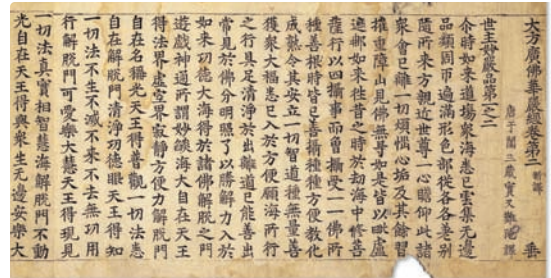 大方廣佛華嚴經卷第二 新譯 垂
唐于闐三藏實叉難陁譯
世主妙嚴品第一之二
尒時如來道場衆海悉已雲集无邊
品類周帀遍滿形色部從各各差別
隨所來方親近世尊一心瞻仰此諸
衆會已離一切煩惱心垢及其餘習
摧重障山見佛無㝵如是皆以毗盧
遮那如來往昔之時於劫海中修菩
薩行以四攝事而曾攝受一一佛所
種善根時皆已善攝種種方便教化
成熟令其安立一切智道種無量善
獲衆大福悉已入於方便願海所行
之行具足清淨於出離道已能善出
常見於佛分明照了以勝解力入於
如來功德大海得於諸佛解脫之門
遊戲神通所謂妙焰海大自在天王
得法界虛空界寂靜方便力解脫門
自在名稱光天王得普觀一切法悉
自在解脫門清淨功德眼天王得知
一切法不生不滅不來不去無功用
行解脫門可愛樂大慧天王得現見
一切法真實相智慧海解脫門不動
光自在天王得與衆生无邊安樂大